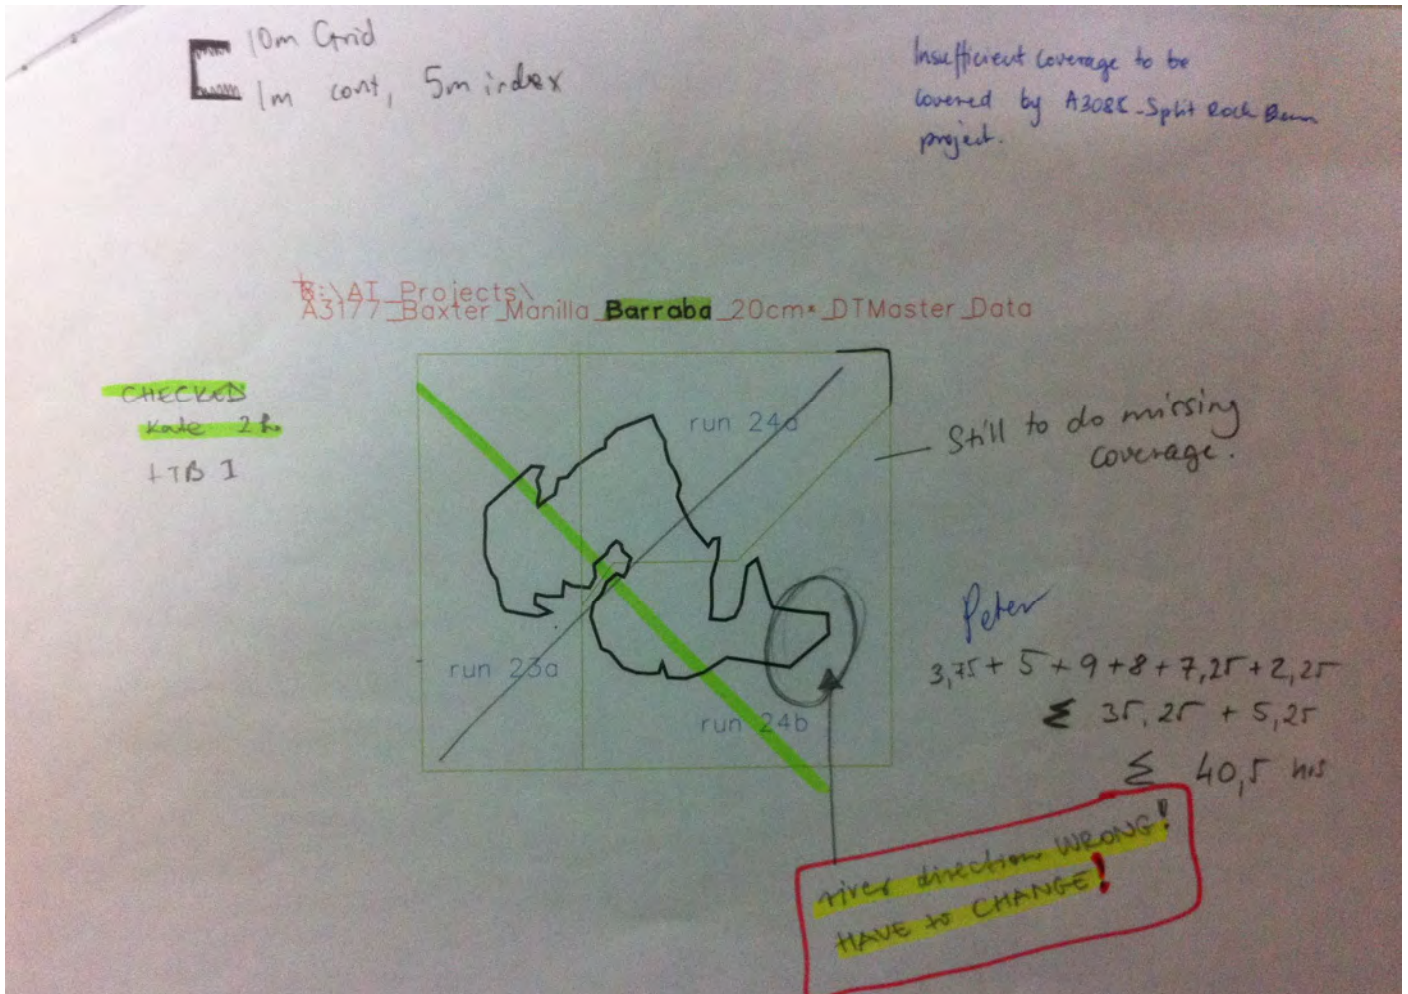 10m Grid
1m cont, 5m index
Insufficient coverage to be
covered by A3085_Split Rock Dam
project.
B:\AT_Projects\
A3177_Baxter_Manilla_Barraba_20cm*_DTMaster_Data
CHECKED
Kate 2h
+TB I
run 24a
Still to do missing
coverage.
run 23a
run 24b
Peter
3,75 + 5 + 9 + 8 + 7,25 + 2,25
Σ 35,25 + 5,25
Σ 40,5 hrs
river direction WRONG!
HAVE to CHANGE!